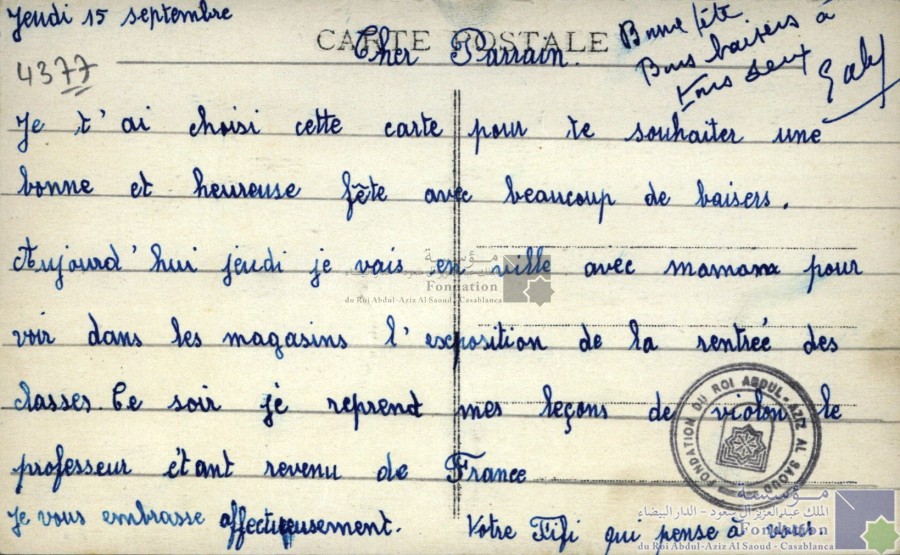 Jeudi 15 septembre
4377
CARTE POSTALE
Cher Parrain.
Bonne fête
Bons baisers à
tous deux
Gaby
Je t'ai choisi cette carte pour te souhaiter une
bonne et heureuse fête avec beaucoup de baisers.
Aujourd'hui jeudi je vais en ville avec maman pour
voir dans les magasins l'exposition de la rentrée des
classes. Ce soir je reprend mes leçons de violon le
professeur étant revenu de France
Je vous embrasse affectueusement. Votre Fifi qui pense à vous.
مؤسسة
الملك عبد العزيز آل سعود - الدار البيضاء
Fondation
du Roi Abdul-Aziz Al Saoud - Casablanca
FONDATION DU ROI ABDUL-AZIZ AL SAOUD
مؤسسة
الملك عبد العزيز آل سعود - الدار البيضاء
Fondation
du Roi Abdul-Aziz Al Saoud - Casablanca